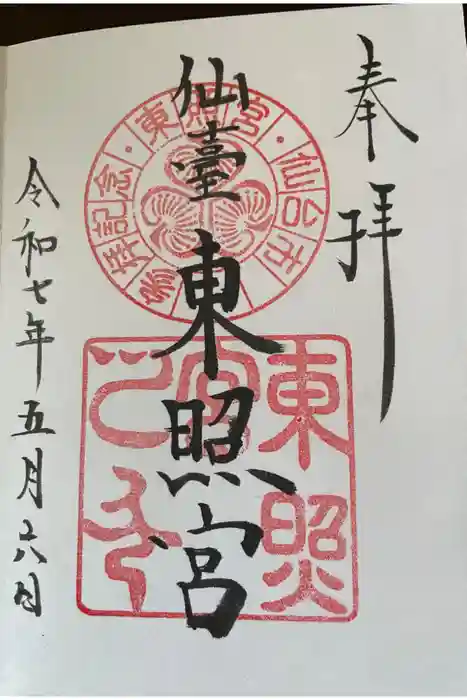 奉拝
仙臺東照宮
令和七年五月六日
東照宮・仙台市・参拝記念
東照宮